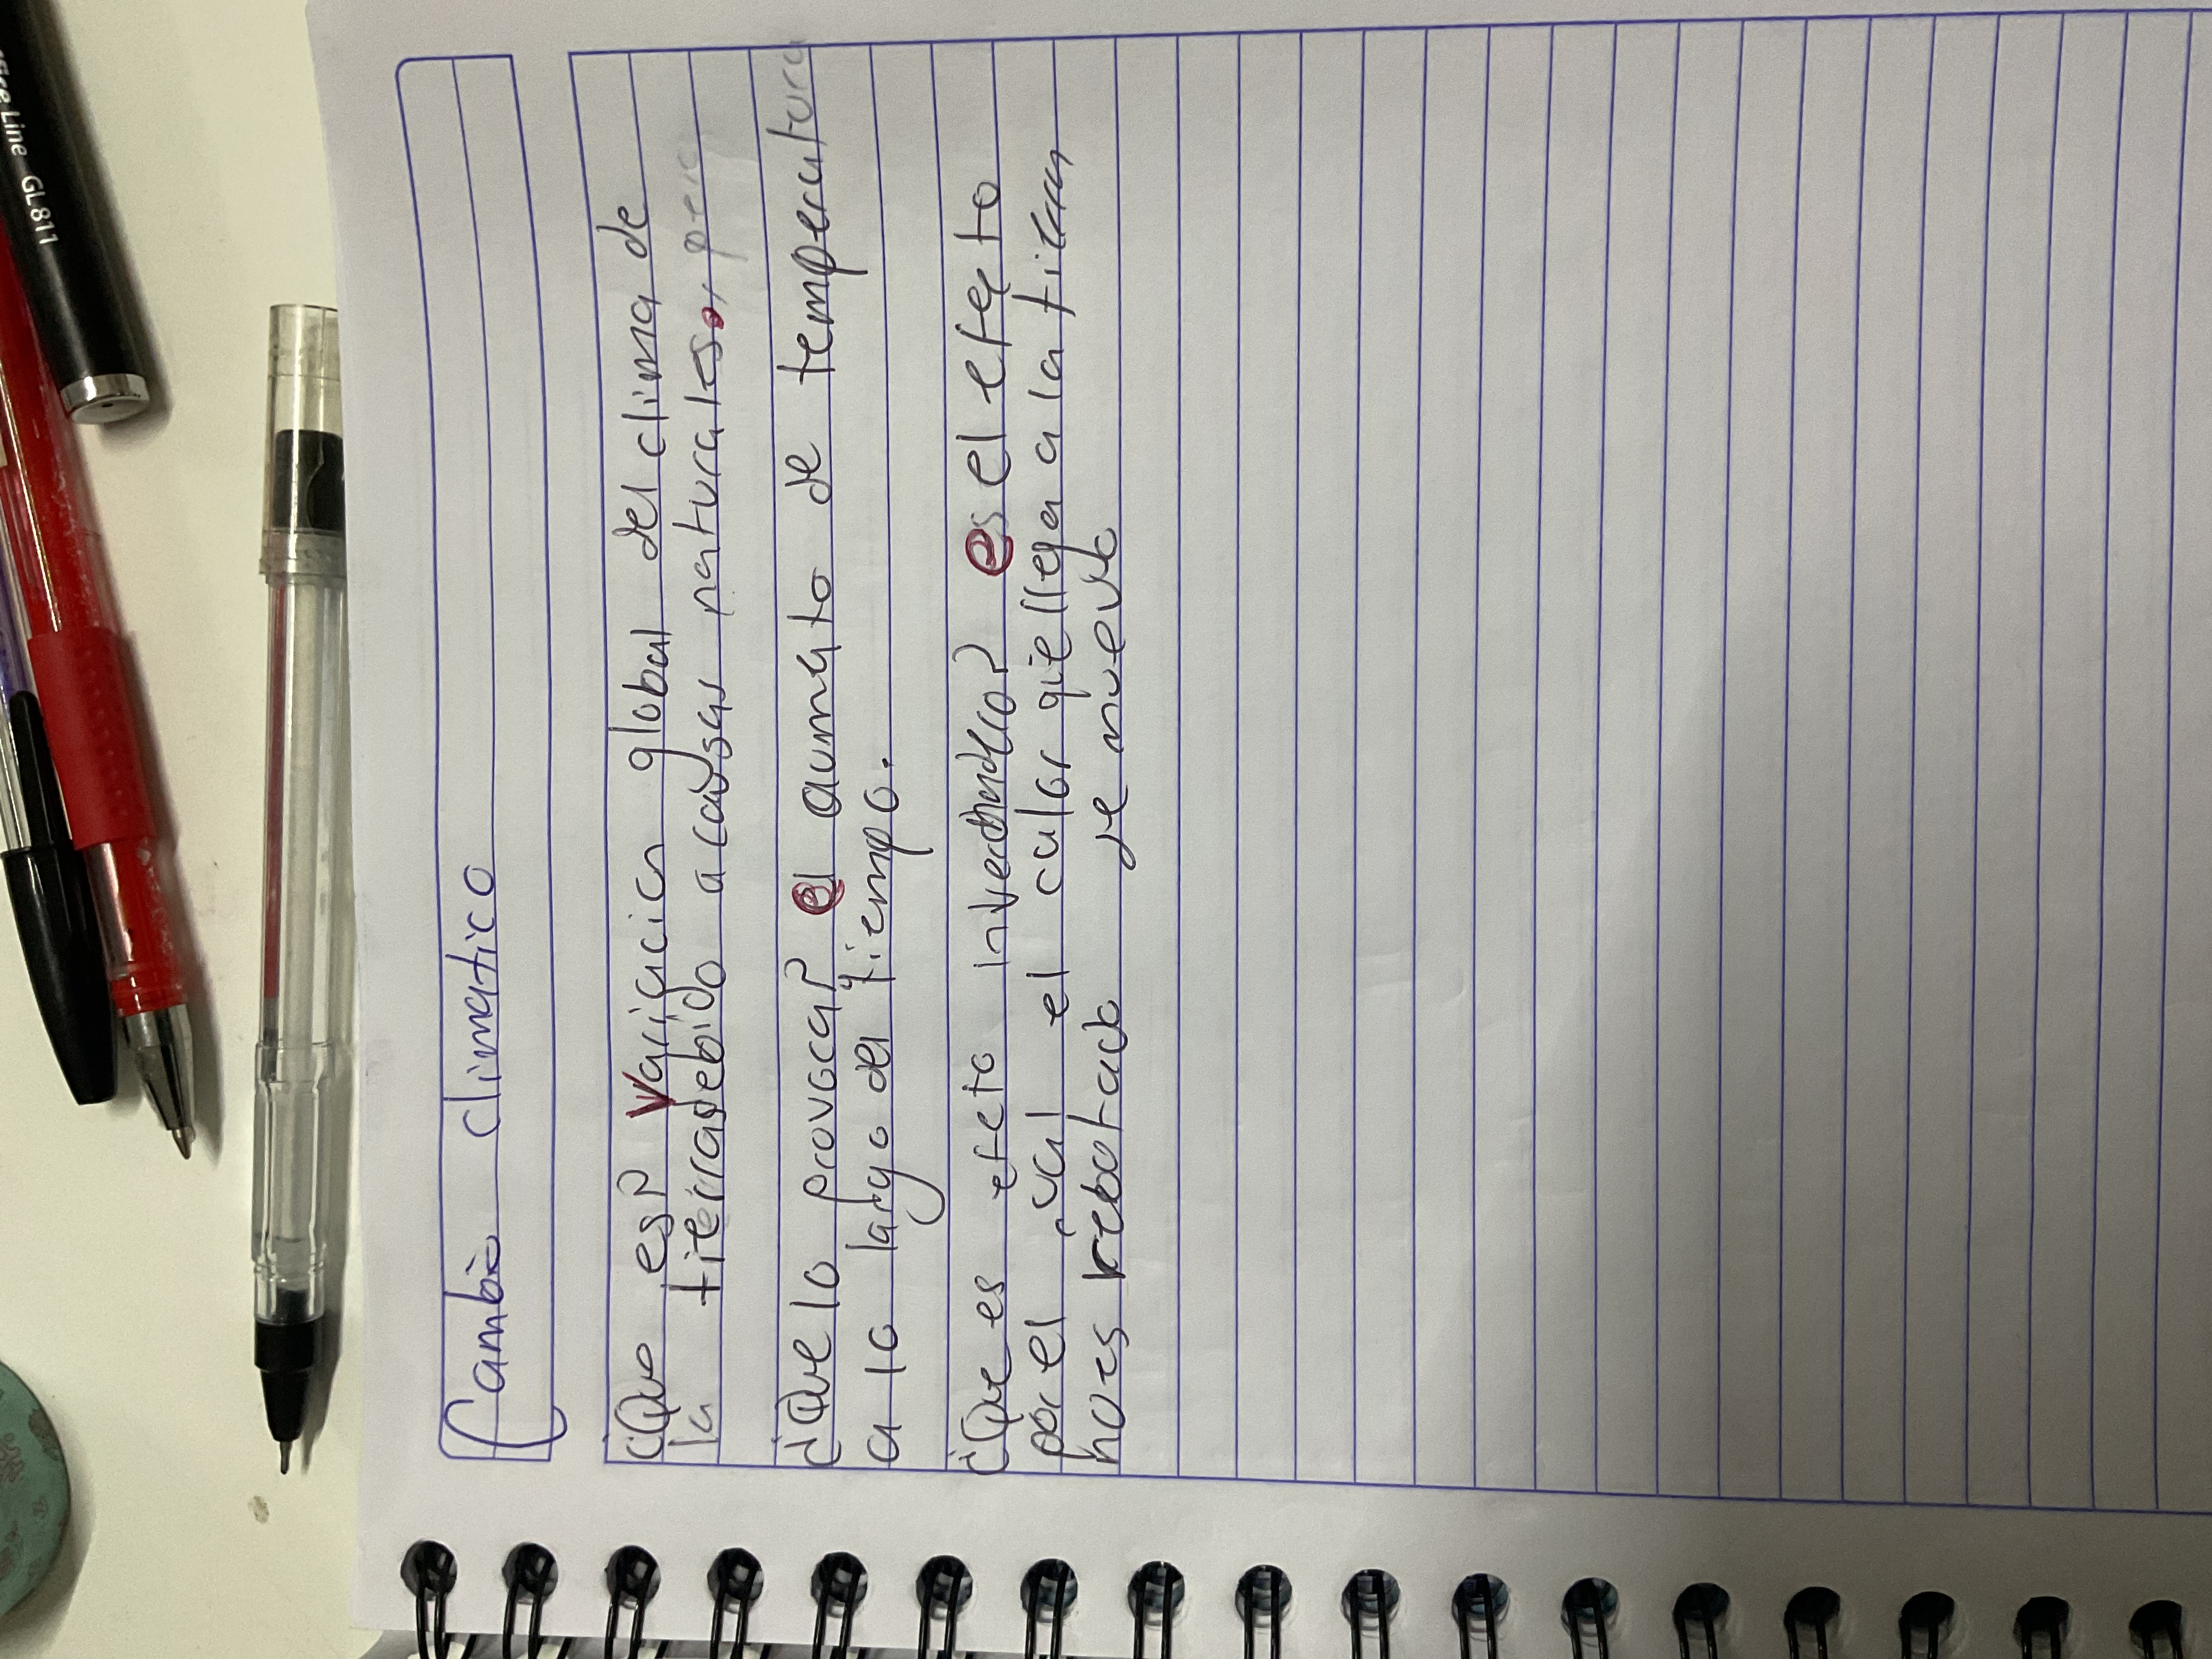 Cambio climatico
¿Que es? Variacion global del clima de
la tierra debido a causas naturales. pero
¿Que lo provoca? el aumato de temperatura
a lo largo del tiempo.
¿Que es efeto es el efecto
por el cual el calor que llega a la tierra
no es rebotado se mueve
fice Line GL811